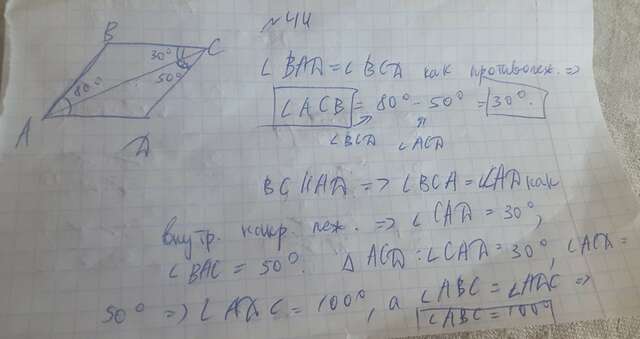 №44
B
C
30°
50°
80°
A
Д
∠ BAД = ∠ BCД как противолеж. =>
∠ACB = 80° - 50° = 30°.
∠BCД ∠ACД
BC || AД => ∠BCA = ∠CAД как
внутр. накр. леж. => ∠CAД = 30°,
∠ BAC = 50°. Δ ACД : ∠CAД = 30°, ∠ACД =
50° => ∠ AДC = 100°, а ∠ABC = ∠AДC =>
∠ABC = 100°